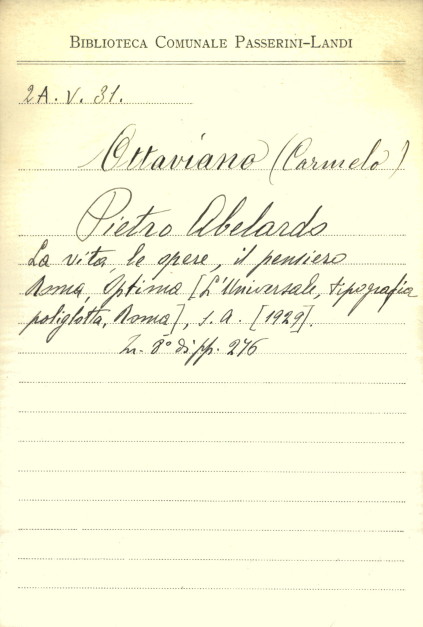 BIBLIOTECA COMUNALE PASSERINI-LANDI
2A. V. 31.
Ottaviano (Carmelo)
Pietro Abelardo
La vita, le opere, il pensiero
Roma, Optima [L'Universale, tipografia
poliglotta, Roma], s. a. [1929].
In. 8° di pp. 276